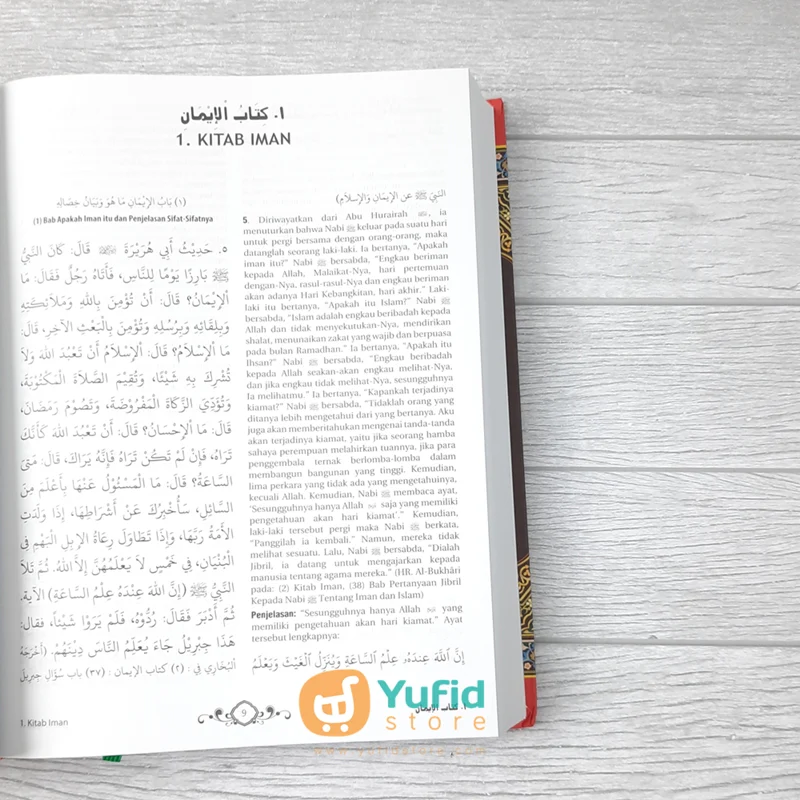 ١. كِتَابُ الْإِيْمَانِ
1. KITAB IMAN
(١) بَابُ الْإِيْمَانِ مَا هُوَ وَبَيَانُ خِصَالِهِ
(1) Bab Apakah Iman itu dan Penjelasan Sifat-Sifatnya
٥. حَدِيْثُ أَبِي هُرَيْرَةَ ﵁ قَالَ: كَانَ النَّبِيُّ
ﷺ بَارِزًا يَوْمًا لِلنَّاسِ، فَأَتَاهُ رَجُلٌ فَقَالَ: مَا
الْإِيْمَانُ؟ قَالَ: أَنْ تُؤْمِنَ بِاللهِ وَمَلَائِكَتِهِ
وَبِلِقَائِهِ وَبِرُسُلِهِ وَتُؤْمِنَ بِالْبَعْثِ الْآخِرِ، قَالَ:
مَا الْإِسْلَامُ؟ قَالَ: الْإِسْلَامُ أَنْ تَعْبُدَ اللهَ وَلَا
تُشْرِكَ بِهِ شَيْئًا، وَتُقِيْمَ الصَّلَاةَ الْمَكْتُوْبَةَ،
وَتُؤَدِّيَ الزَّكَاةَ الْمَفْرُوْضَةَ، وَتَصُوْمَ رَمَضَانَ،
قَالَ: مَا الْإِحْسَانُ؟ قَالَ: أَنْ تَعْبُدَ اللهَ كَأَنَّكَ
تَرَاهُ، فَإِنْ لَمْ تَكُنْ تَرَاهُ فَإِنَّهُ يَرَاكَ، قَالَ: مَتَى
السَّاعَةُ؟ قَالَ: مَا الْمَسْئُوْلُ عَنْهَا بِأَعْلَمَ مِنَ
السَّائِلِ، سَأُخْبِرُكَ عَنْ أَشْرَاطِهَا، إِذَا وَلَدَتِ
الْأَمَةُ رَبَّهَا، وَإِذَا تَطَاوَلَ رِعَاةُ الْإِبِلِ الْبَهْمِ فِي
الْبُنْيَانِ، فِي خَمْسٍ لَا يَعْلَمُهُنَّ إِلَّا اللهُ. ثُمَّ تَلَا
النَّبِيُّ ﷺ (إِنَّ اللهَ عِنْدَهُ عِلْمُ السَّاعَةِ) الْآيَةَ.
ثُمَّ أَدْبَرَ فَقَالَ: رُدُّوْهُ، فَلَمْ يَرَوْا شَيْئًا، فَقَالَ:
هَذَا جِبْرِيْلُ جَاءَ يُعَلِّمُ النَّاسَ دِيْنَهُمْ. (أَخْرَجَهُ
الْبُخَارِي فِي: (٢) كتاب الإيمان: (٣٧) باب سُؤَالِ جِبْرِيلَ
النَّبِيَّ ﷺ عَنِ الْإِيمَانِ وَالْإِسْلَامِ)
5. Diriwayatkan dari Abu Hurairah ﵁, ia
menuturkan bahwa Nabi ﷺ keluar pada suatu hari
untuk pergi bersama dengan orang-orang, maka
datanglah seorang laki-laki. Ia bertanya, "Apakah
iman itu?" Nabi ﷺ bersabda, "Engkau beriman
kepada Allah, Malaikat-Nya, hari pertemuan
dengan-Nya, rasul-rasul-Nya dan engkau beriman
akan adanya Hari Kebangkitan, hari akhir." Laki-
laki itu bertanya, "Apakah itu Islam?" Nabi ﷺ
bersabda, "Islam adalah engkau beribadah kepada
Allah dan tidak menyekutukan-Nya, mendirikan
shalat, menunaikan zakat yang wajib dan berpuasa
pada bulan Ramadhan." Ia bertanya, "Apakah itu
Ihsan?" Nabi ﷺ bersabda, "Engkau beribadah
kepada Allah seakan-akan engkau melihat-Nya,
dan jika engkau tidak melihat-Nya, sesungguhnya
Ia melihatmu." Ia bertanya, "Kapankah terjadinya
kiamat?" Nabi ﷺ bersabda, "Tidaklah orang yang
ditanya lebih mengetahui dari yang bertanya. Aku
juga akan memberitahukan mengenai tanda-tanda
akan terjadinya kiamat, yaitu jika seorang hamba
sahaya perempuan melahirkan tuannya, jika para
penggembala ternak berlomba-lomba dalam
membangun bangunan yang tinggi. Kemudian,
lima perkara yang tidak ada yang mengetahuinya,
kecuali Allah. Kemudian, Nabi ﷺ membaca ayat,
'Sesungguhnya hanya Allah ﷻ saja yang memiliki
pengetahuan akan hari kiamat'." Kemudian,
laki-laki tersebut pergi maka Nabi ﷺ berkata,
"Panggilah ia kembali." Namun, mereka tidak
melihat sesuatu. Lalu, Nabi ﷺ bersabda, "Dialah
Jibril, ia datang untuk mengajarkan kepada
manusia tentang agama mereka." (HR. Al-Bukhâri
pada: (2) Kitab Iman, (38) Bab Pertanyaan Jibril
Kepada Nabi ﷺ Tentang Iman dan Islam)
Penjelasan: "Sesungguhnya hanya Allah ﷻ yang
memiliki pengetahuan akan hari kiamat." Ayat
tersebut lengkapnya:
إِنَّ اللَّهَ عِندَهُ عِلْمُ السَّاعَةِ وَيُنَزِّلُ الْغَيْثَ وَيَعْلَمُ
1. Kitab Iman
9
١. كتاب الإيمان
Yufid
store
www.yufidstore.com